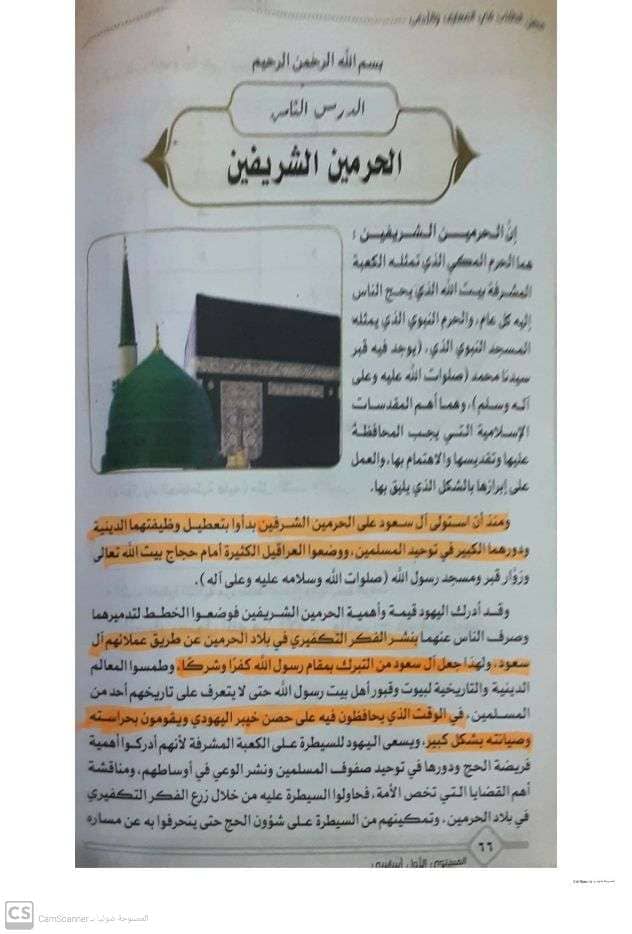 بسم الله الرحمن الرحيم
الدرس الثامن
الحرمين الشريفين
إنَّ الحرمين الشريفين :
هما الحرم المكي الذي تمثله الكعبة
المشرفة بيت الله الذي يحج الناس
إليه كل عام، والحرم النبوي الذي يمثله
المسجد النبوي الذي، (يوجد فيه قبر
سيدنا محمد (صلوات الله عليه وعلى
آله وسلم)، وهما أهم المقدسات
الإسلامية التي يجب المحافظة
عليها وتقديسها والاهتمام بها، والعمل
على إبرازها بالشكل الذي يليق بها.
ومنذ أن استولى آل سعود على الحرمين الشرفين بدأوا بتعطيل وظيفتهما الدينية
ودورهما الكبير في توحيد المسلمين، ووضعوا العراقيل الكثيرة أمام حجاج بيت الله تعالى
وزوَّار قبر ومسجد رسول الله (صلوات الله وسلامه عليه وعلى آله).
وقد أدرك اليهود قيمة وأهمية الحرمين الشريفين فوضعوا الخطط لتدميرهما
وصرف الناس عنهما بنشر الفكر التكفيري في بلاد الحرمين عن طريق عملائهم آل
سعود، ولهذا جعل آل سعود من التبرك بمقام رسول الله كفرًا وشركًا، وطمسوا المعالم
الدينية والتاريخية لبيوت وقبور أهل بيت رسول الله حتى لا يتعرف على تاريخهم أحد من
المسلمين، في الوقت الذي يحافظون فيه على حصن خيبر اليهودي ويقومون بحراسته
وصيانته بشكل كبير، ويسعى اليهود للسيطرة على الكعبة المشرفة لأنهم أدركوا أهمية
فريضة الحج ودورها في توحيد صفوف المسلمين ونشر الوعي في أوساطهم، ومناقشة
أهم القضايا التي تخص الأمة، فحاولوا السيطرة عليه من خلال زرع الفكر التكفيري
في بلاد الحرمين، وتمكينهم من السيطرة على شؤون الحج حتى ينحرفوا به عن مساره
٦٦
المستوى الأول أساسي
CS
الممسوحة ضوئيا بـ CamScanner